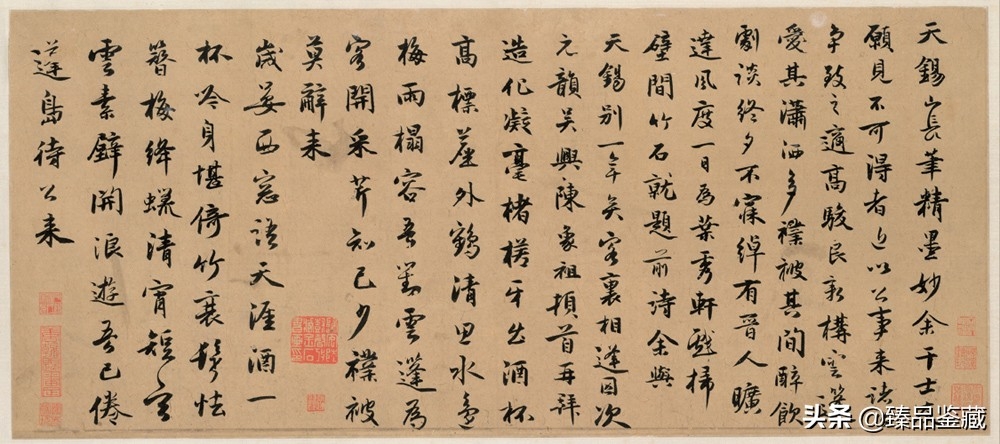 天錫山長筆精墨妙余干士
願見不可得者近以公事來諸
爭致之適高駿良新構雲
愛其瀟洒多襆被其間醉飲
劇談終夕不寐綽有晉人曠
達風度一日為葉秀軒戲掃
壁間竹石就題前詩余與
天錫別一年矣客裏相逢因次
元韻吳興陳象祖頓首再拜
造化凝毫楮槎牙出酒杯
高標塵外鶴清思水邊
梅雨榻容吾對雲蓬為
客開采芹知己少襆被
莫辭來
歲晏西窓話天涯酒一
杯吟身堪倚竹衰鬢怯
簪梅絳蠟清宵短
雲素壁開浪遊吾已倦
蓬島待公來
头条 @臻品鉴藏